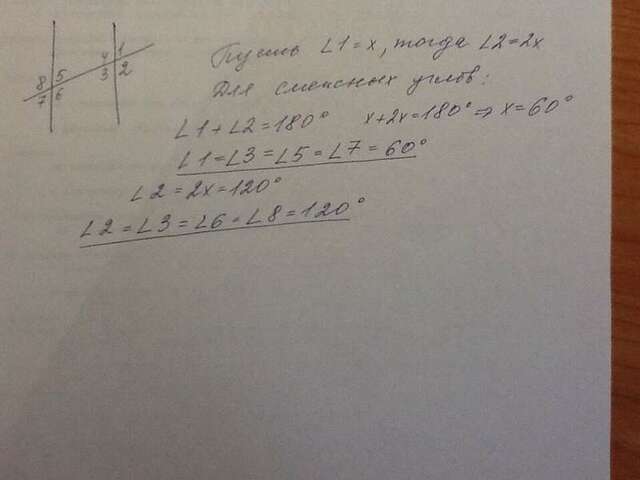 4 1
3 2
8 5
7 6
Пусть ∠1=x, тогда ∠2=2x
Для смежных углов:
∠1+∠2=180° x+2x=180° ⇒ x=60°
∠1=∠3=∠5=∠7=60°
∠2=2x=120°
∠2=∠3=∠6=∠8=120°